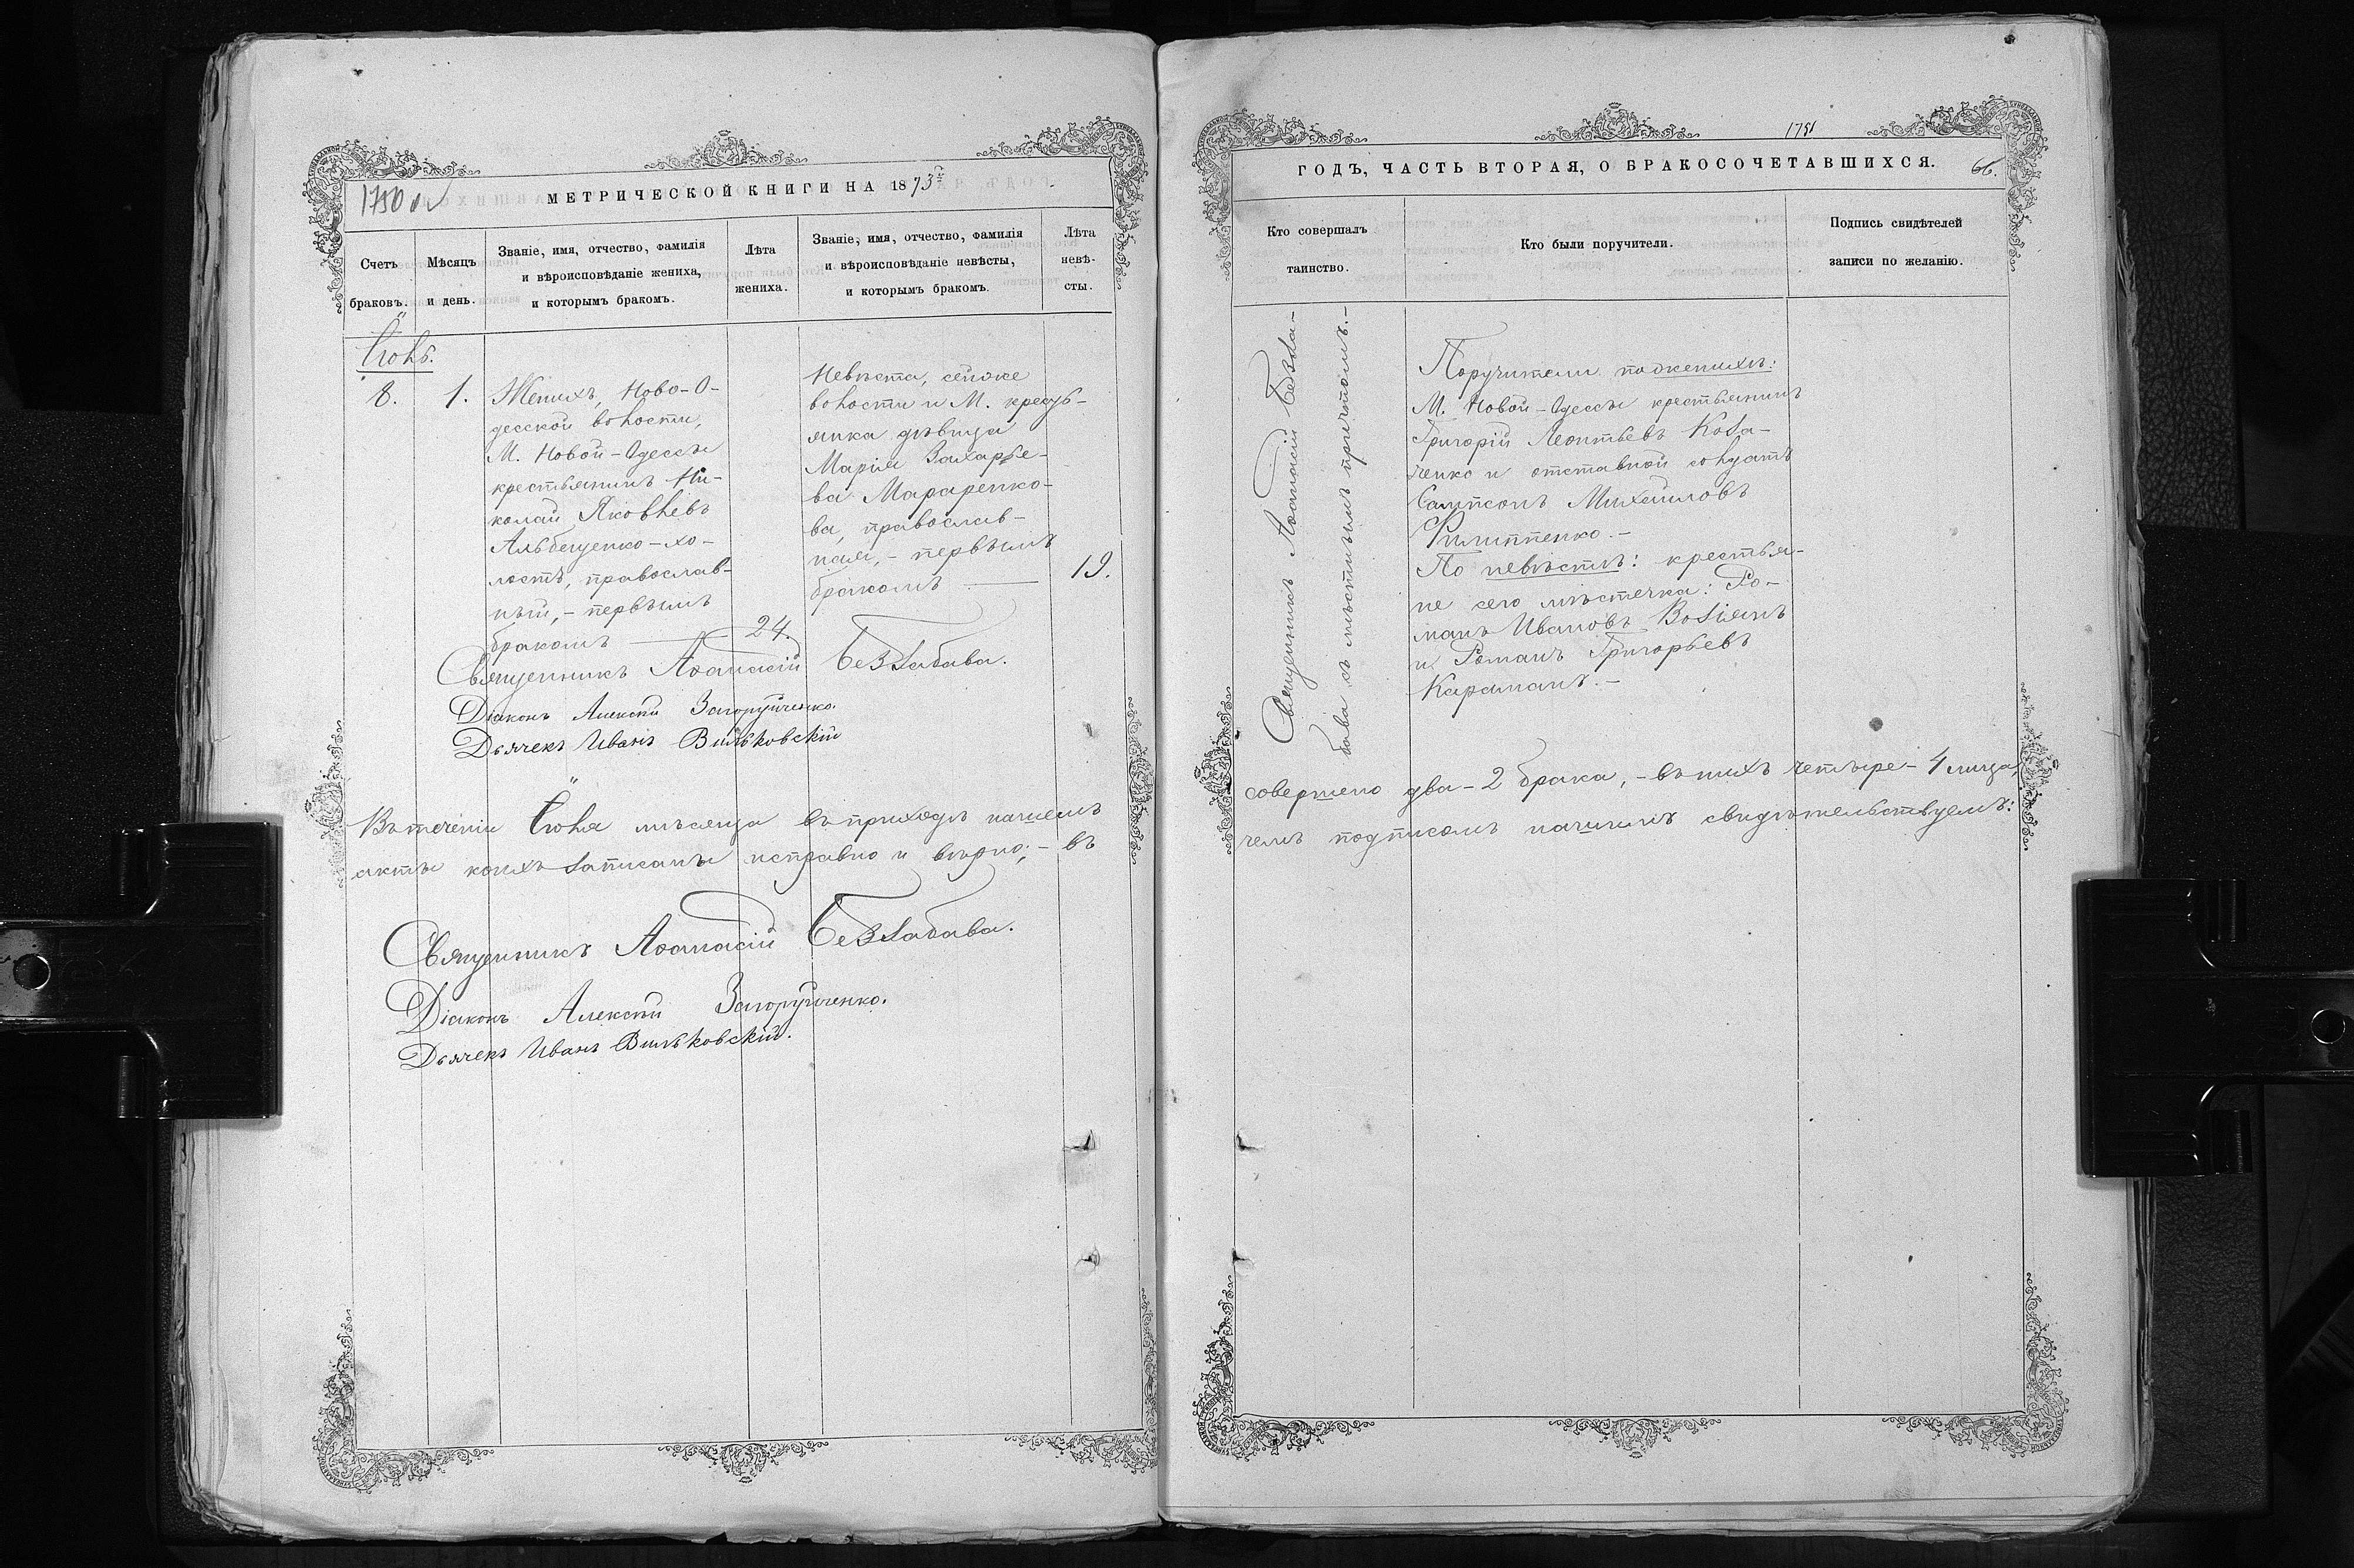 1750 об
МЕТРИЧЕСКОЙ КНИГИ НА 1873й
Счетъ браковъ.
Мѣсяцъ и день.
Званіе, имя, отчество, фамилія
и вѣроисповѣданіе жениха,
и которымъ бракомъ.
Лѣта
жениха.
Званіе, имя, отчество, фамилія
и вѣроисповѣданіе невѣсты,
и которымъ бракомъ.
Лѣта
невѣ-
сты.
Іюль.
8.
1.
Женихъ, Ново-О-
десской волости,
М. Новой-Одессы
крестьянинъ Ни-
колай Яковлевъ
Альбещенко - хо-
лостъ, православ-
ный, - первымъ
бракомъ
24.
Невѣста, сейже
волости и М. кресть-
янка дѣвица
Марія Захарье-
ва Мараренко-
ва, православ-
ная, - первымъ
бракомъ
19.
Священникъ Аѳанасій Беззабава.
Діаконъ Алексѣй Загоруйченко.
Дьячекъ Иванъ Вильковскій
Въ теченіи Іюля мѣсяца въ приходѣ нашемъ
акты коихъ записаны исправно и вѣрно; - въ
Священникъ Аѳанасій Беззабава.
Діаконъ Алексѣй Загоруйченко.
Дьячекъ Иванъ Вильковскій.
1751
ГОДЪ, ЧАСТЬ ВТОРАЯ, О БРАКОСОЧЕТАВШИХСЯ.
66.
Кто совершалъ
таинство.
Кто были поручители.
Подпись свидѣтелей
записи по желанію.
Священникъ Аѳанасій Безза-
бава съ мѣстнымъ причтомъ. -
Поручители по женихѣ:
М. Новой-Одессы крестьянинъ
Григорій Леонтьевъ Коза-
ченко и отставной солдатъ
Сампсонъ Михайловъ
Филиппенко. -
По невѣстѣ: крестья-
не сего мѣстечка: Ро-
манъ Ивановъ Возіянъ
и Романъ Григорьевъ
Караманъ. -
совершено два - 2 брака, - въ нихъ четыре - 4 лица,
чемъ подписомъ нашимъ свидѣтельствуемъ: